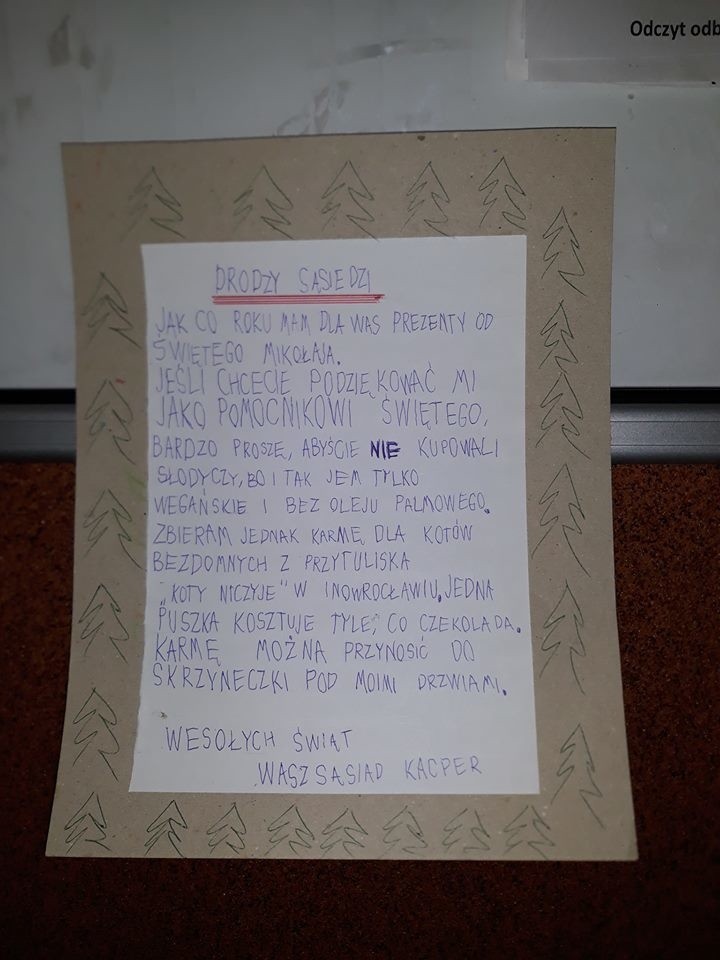 Odczyt odb
DRODZY SĄSIEDZI
JAK CO ROKU MAM DLA WAS PREZENTY OD
ŚWIĘTEGO MIKOŁAJA.
JEŚLI CHCECIE PODZIĘKOWAĆ MI
JAKO POMOCNIKOWI ŚWIĘTEGO,
BARDZO PROSZĘ, ABYŚCIE NIE KUPOWALI
SŁODYCZY, BO I TAK JEM TYLKO
WEGAŃSKIE I BEZ OLEJU PALMOWEGO.
ZBIERAM JEDNAK KARMĘ DLA KOTÓW
BEZDOMNYCH Z PRZYTULISKA
„KOTY NICZYJE" W INOWROCŁAWIU. JEDNA
PUSZKA KOSZTUJE TYLE, CO CZEKOLADA.
KARMĘ MOŻNA PRZYNOSIĆ DO
SKRZYNECZKI POD MOIMI DRZWIAMI.
WESOŁYCH ŚWIĄT
WASZ SĄSIAD KACPER